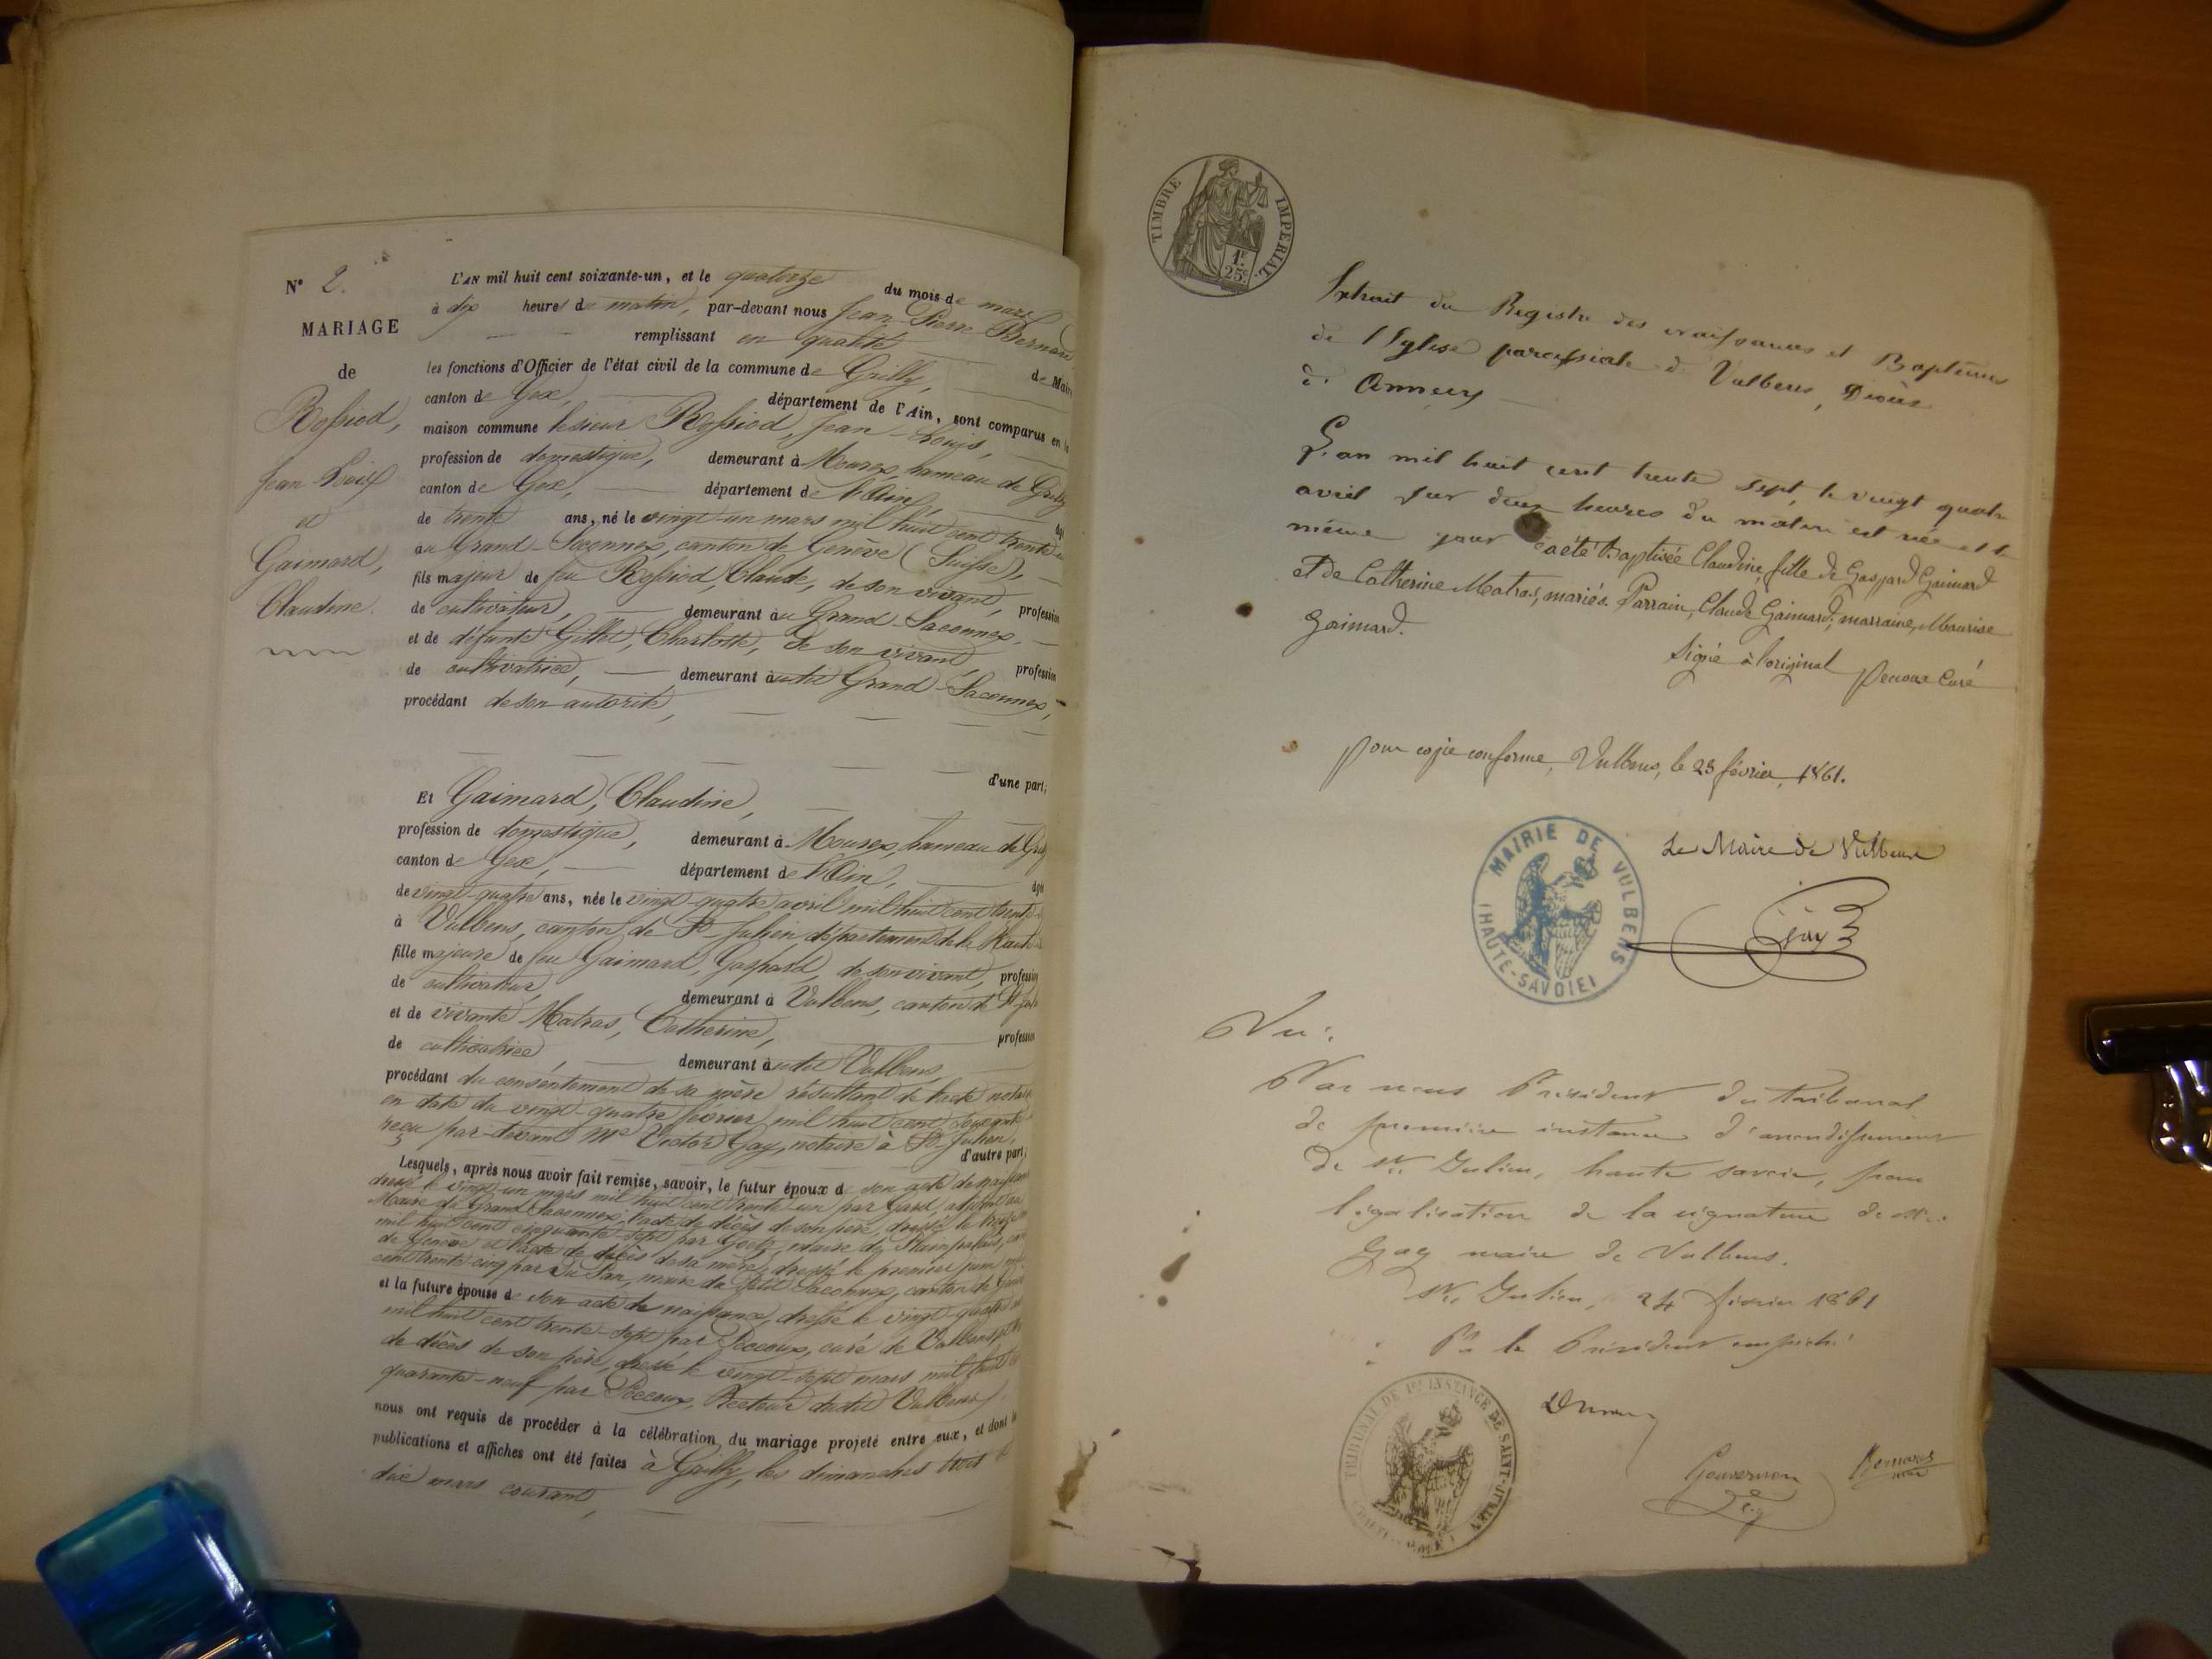 N° 2.
MARIAGE
de
Rossiod,
Jean Louis
et
Gaimard,
Claudine.
L'AN mil huit cent soixante-un, et le quatorze du mois de mars
à dix heures de matin, par-devant nous Jean-Pierre Bernard
remplissant en qualité de Maire
les fonctions d'Officier de l'état civil de la commune de Grilly,
canton de Gex, département de l'Ain, sont comparus en la
maison commune le sieur Rossiod, Jean-Louis,
profession de domestique, demeurant à Mourex, hameau de Grilly
canton de Gex, département de l'Ain, âgé
de trente ans, né le vingt-un mars mil huit cent trente
au Grand-Saconnex, canton de Genève (Suisse),
fils majeur de feu Rossiod, Claude, de son vivant, profession
de cultivateur, demeurant au Grand-Saconnex,
et de défunte Gillet, Charlotte, de son vivant, profession
de cultivatrice, demeurant audit Grand-Saconnex,
procédant de son autorité,
d'une part;
Et Gaimard, Claudine,
profession de domestique, demeurant à Mourex, hameau de Grilly
canton de Gex, département de l'Ain, âgée
de vingt-quatre ans, née le vingt-quatre avril mil huit cent trente
à Vulbens, canton de St-Julien département de la Haute
fille majeure de feu Gaimard, Gaspard, de son vivant, profession
de cultivateur, demeurant à Vulbens, canton de St Julien
et de vivante Matras, Catherine, profession
de cultivatrice, demeurant audit Vulbens,
procédant du consentement de sa mère résultant de l'acte notarié
en date du vingt-quatre février mil huit cent soixante
reçu par-devant Me Victor Gay, notaire à St Julien,
d'autre part;
Lesquels, après nous avoir fait remise, savoir, le futur époux de son acte de naissance
dressé le vingt-un mars mil huit cent trente-un par Gard, adjoint au
Maire du Grand Saconnex; l'acte de décès de son père, dressé le treize
mil huit cent cinquante-sept par Goetz, maire de Plainpalais, canton
de Genève et l'acte de décès de sa mère, dressé le premier juin mil
cent trente cinq par Du Pan, maire du Petit Saconnex, canton de Genève
et la future épouse de son acte de naissance, dressé le vingt-quatre
mil huit cent trente-sept par Pecoux, curé de Vulbens,
de décès de son père, dressé le vingt-sept mars mil huit
quarante-neuf par Pecoux, Recteur dudit Vulbens,
nous ont requis de procéder à la célébration du mariage projeté entre eux, et dont les
publications et affiches ont été faites à Grilly, les dimanches trois et
dix mars courant,
TIMBRE IMPÉRIAL.
1F
25c
Extrait du Registre des naissances et Baptêmes
de l'Eglise paroissiale de Vulbens, Diocèse
d'Annecy
L'an mil huit cent trente sept, le vingt quatre
avril sur deux heures du matin est née et le
même jour a été Baptisée Claudine, fille de Gaspard Gaimard
et de Catherine Matras, mariés. Parrain, Claude Gaimard; marraine, Maurise
Gaimard.
Signé à l'original Pecoux Curé
Pour copie conforme, Vulbens, le 23 février 1861.
Le Maire de Vulbens
MAIRIE DE VULBENS
(HAUTE-SAVOIE)
Gay
Vu:
Par nous Président du tribunal
de première instance d'arrondissement
de St. Julien, haute savoie, pour
légalisation de la signature de Mr.
Gay maire de Vulbens.
St. Julien, 24 février 1861
Pr le Président empêché
TRIBUNAL DE 1RE INSTANCE DE SAINT-JULIEN
Bernard